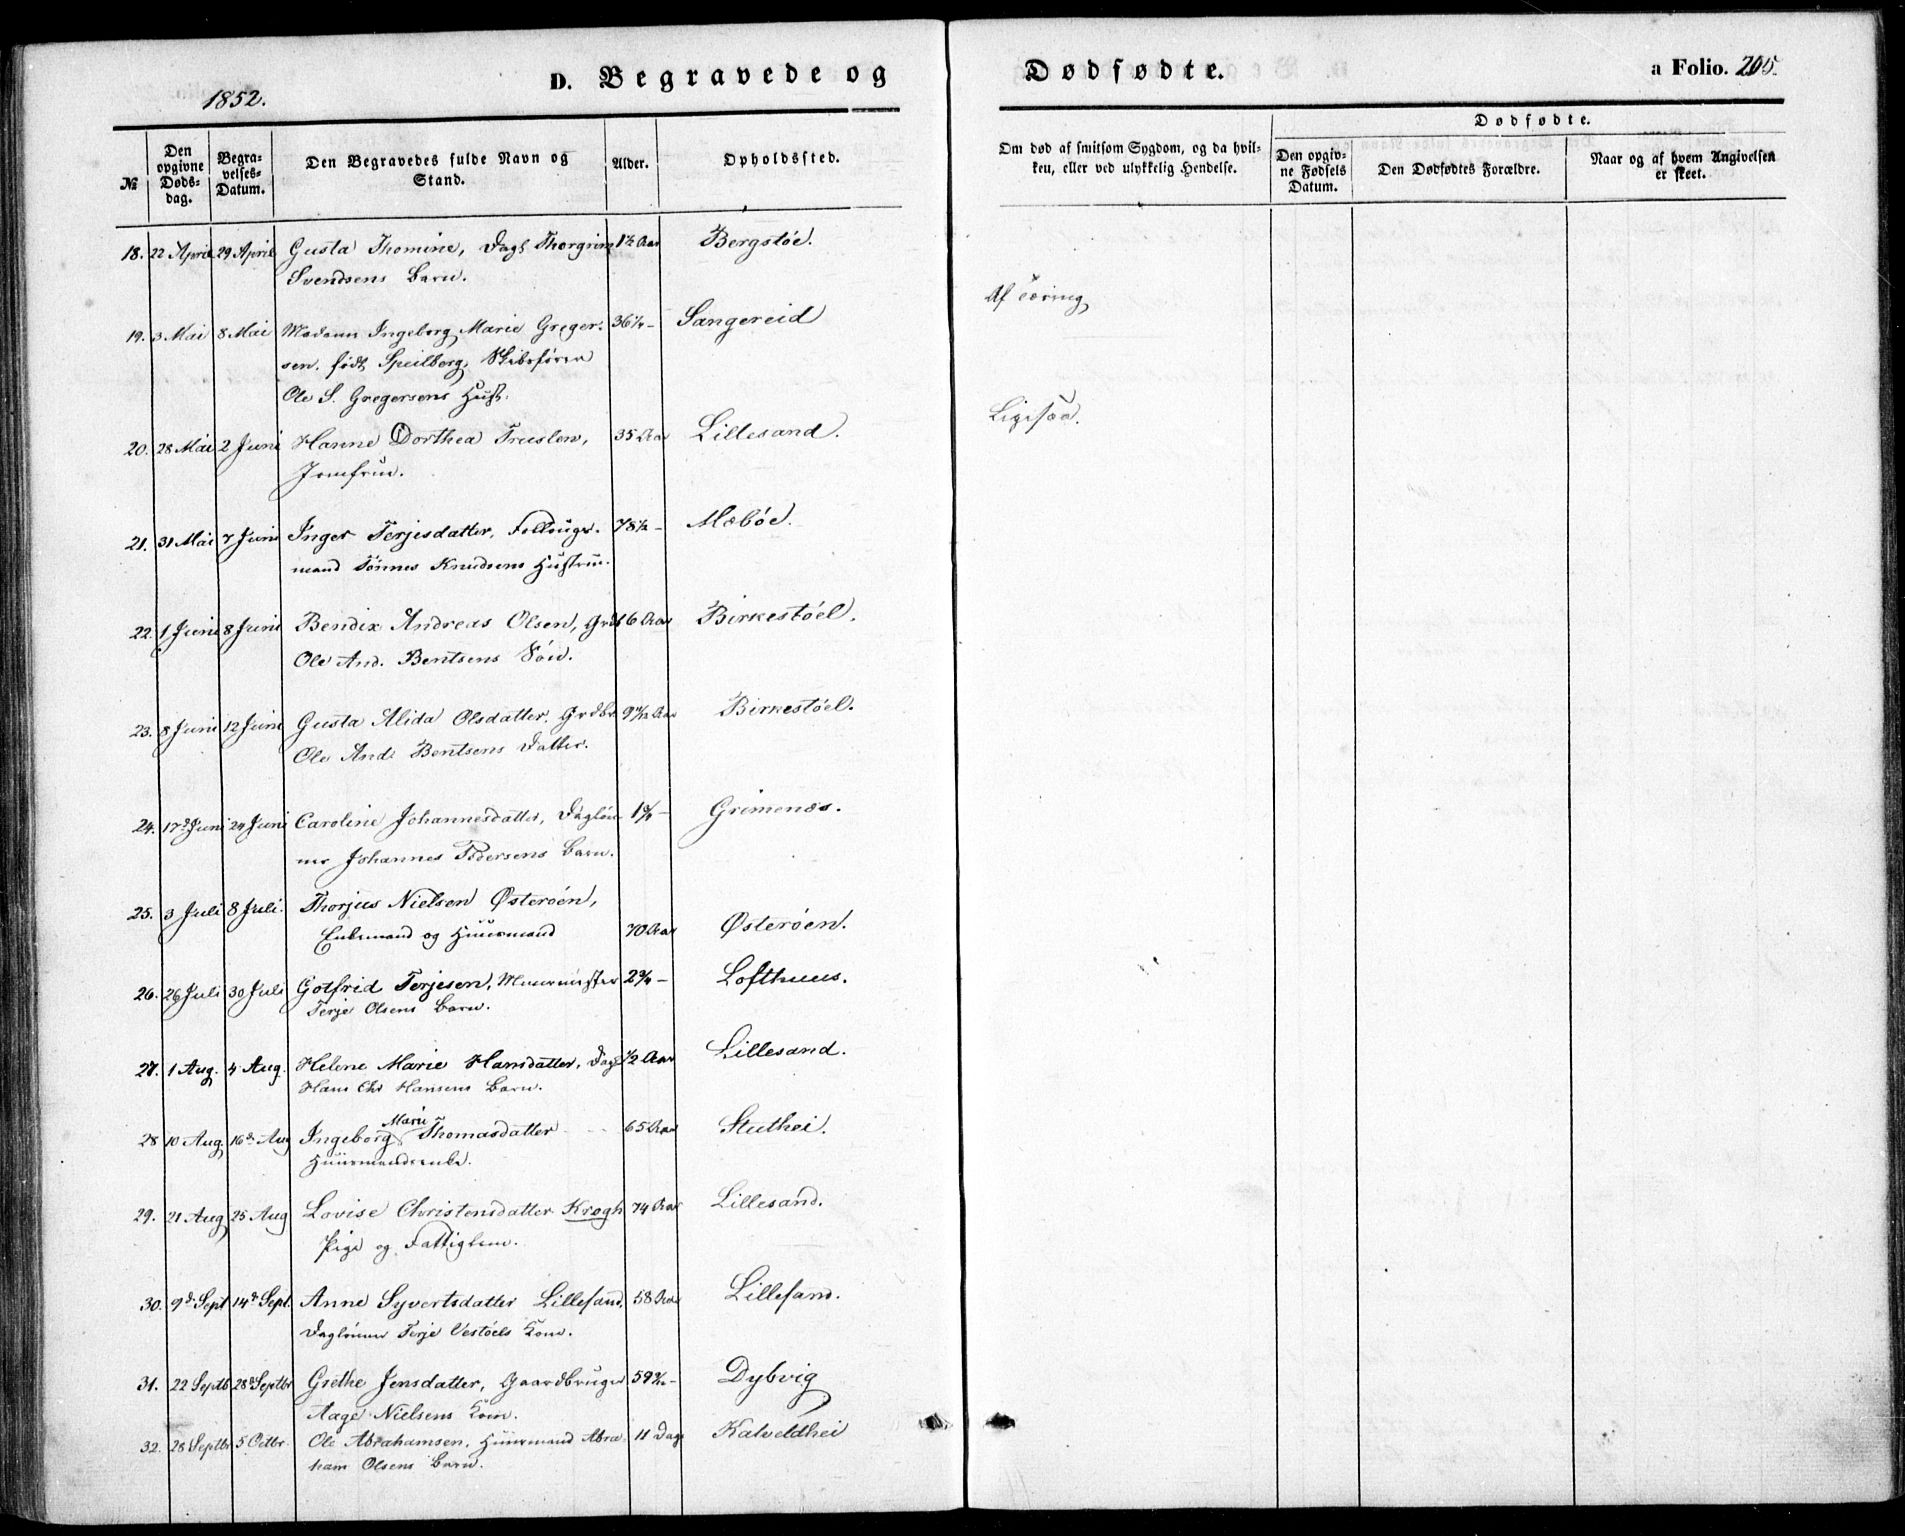 1852.
D. Begravede og Dødfødte.
a Folio. 205.
№
Den opgivne Døds-dag.
Begra-velses-Datum.
Den Begravedes fulde Navn og Stand.
Alder.
Opholdssted.
Om død af smitsom Sygdom, og da hvil-ken, eller ved ulykkelig Hendelse.
Dødfødte.
Den opgiv-ne Fødsels Datum.
Den Dødfødtes Forældre.
Naar og af hvem Angivelsen er skeet.
18. 22 April 29 April Gusta Thomine, Dagl Thorgrim 1½ Aar Bergstøe.
Svendsens Barn.
Af Tæring
19. 3 Mai 8 Mai Madam Ingeborg Marie Greger- 36 – Sangereid
sen, født Speilberg, Skibsfører
Ole S. Gregersens Hust:
20. 28 Mai 2 Juni Hanne Dorthea Truslen, 35 Aar Lillesand.
Jomfrue.
21. 31 Mai 7 Juni Inger Terjesdatter, 78½ – Mæbøe.
mand Tønnes Knudsens Hustrue.
22. 1 Juni 8 Juni Bendix Andreas Olsen, Grdb 6 Aar Birkestøel.
Ole And. Bentsens Søn.
23. 8 Juni 12 Juni Gusta Alida Olsdatter, Grdbr 9 Aar Birkestøel.
Ole And: Bentsens Datter.
24. 17d Juni 24 Juni Caroline Johannesdatter, Dagløn- 1 – Grimenæs.
ner Johannes Pedersens Barn.
25. 3 Juli 8 Juli. Thorjus Nielsen Østerøen,
Enkemand og Huusmand 70 Aar Østerøen.
26. 26 Juli 30 Juli Gotfrid Terjesen, Muurmester 2¾ – Lofthuus.
Terje Olsens Barn.
27. 1 Aug. 4 Aug. Helene Marie Hansdatter, Dagl ½ Aar Lillesand.
Hans Chr Hansens Barn.
28 10 Aug 16d Aug Ingeborg Marie Thomasdatter 65 Aar Stuthei.
Huusmandsenke.
29. 21 Aug 25 Aug Lovise Christensdatter Krogh 74 Aar Lillesand.
Pige og Fattiglem.
30. 9d Sept 14d Sept. Anne Syvertsdatter Lillesand, 58 Aar Lillesand.
Daglønner Terje Vestøels Kone.
31. 22 Septb 28d Septbr Grethe Jensdatter, Gaardbruger 59 – Dybvig
Aage Nielsens Kone.
32. 28 Septbr 5 Octbr. Ole Abrahamsen, Huusmand Abra- 11 Dage Kalveldhei
ham Olsens Barn.